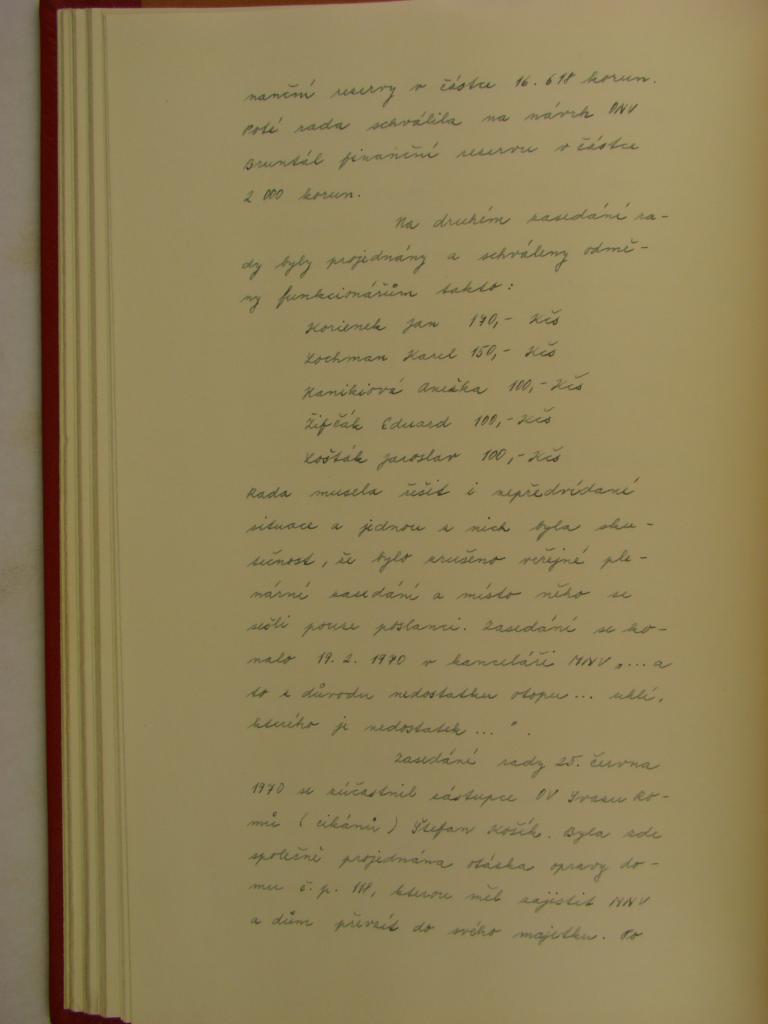 nanční reservy v částce 16.618 korun.
Poté rada schválila na návrh ONV
Bruntál finanční reservu v částce
2 000 korun.
Na druhém zasedání ra-
dy byly projednány a schváleny odmě-
ny funkcionářům takto:
Korienek Jan 170,- Kčs
Lochman Karel 150,- Kčs
Hanikiová Anežka 100,- Kčs
Žifčák Eduard 100,- Kčs
Košťák Jaroslav 100,- Kčs
Rada musela řešit i nepředvídané
situace a jednou z nich byla sku-
tečnost, že bylo zrušeno veřejné ple-
nární zasedání a místo něho se
sešli pouze poslanci. Zasedání se ko-
nalo 19.2. 1970 v kanceláři MNV „... a
to z důvodu nedostatku otopu ... uhlí,
kterého je nedostatek ... ".
Zasedání rady 25. června
1970 se zúčastnil zástupce OV Svazu Ro-
mů (cikánů) Štefan Košík. Byla zde
společně projednána otázka opravy do-
mu č. p. 118, kterou měl zajistit MNV
a dům převzít do svého majetku. Po